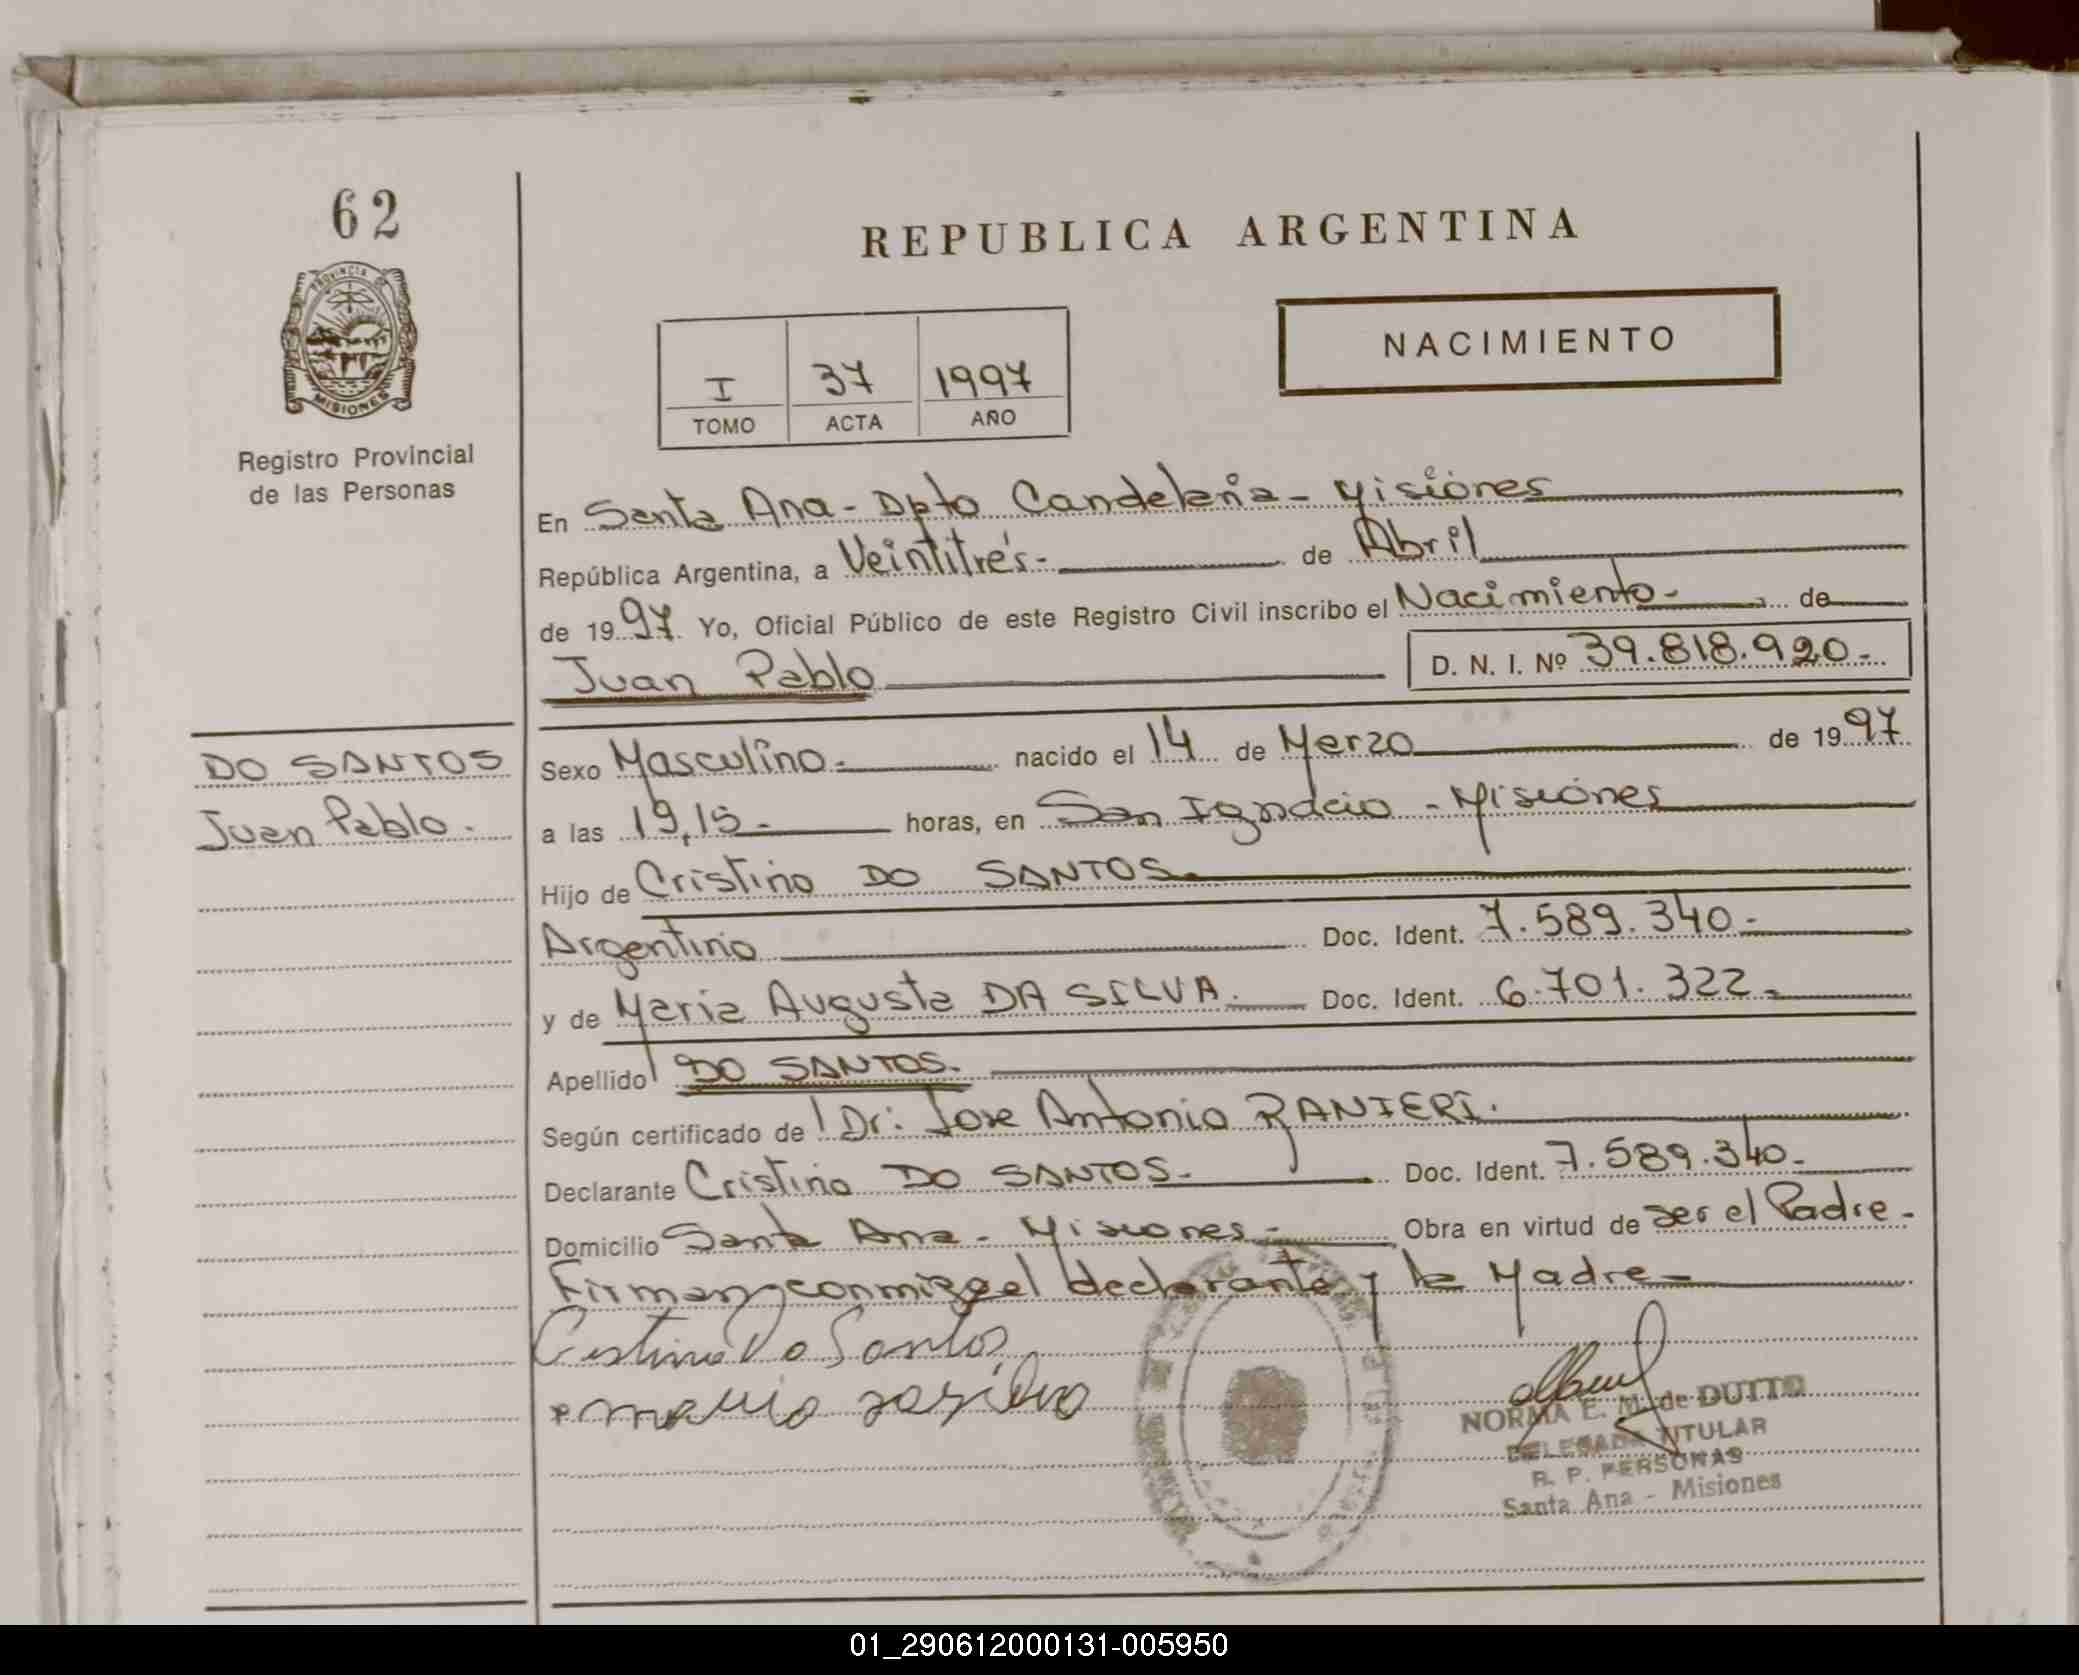 62
PROVINCIA DE
MISIONES
Registro Provincial
de las Personas
REPUBLICA ARGENTINA
NACIMIENTO
I 37 1997
TOMO ACTA AÑO
En Santa Ana - Dpto Candelaria - Misiones
República Argentina, a Veintitrés - de Abril
de 1997 Yo, Oficial Público de este Registro Civil inscribo el Nacimiento - de
Juan Pablo D. N. I. Nº 39.818.920.-
DO SANTOS
Juan Pablo.
Sexo Masculino.- nacido el 14 de Marzo de 1997
a las 19,15.- horas, en San Ignacio - Misiones
Hijo de Cristino DO SANTOS.
Argentino Doc. Ident. 7.589.340.-
y de Maria Augusta DA SILVA.- Doc. Ident. 6.701.322.-
Apellido DO SANTOS.
Según certificado de Dr: Jose Antonio RANIERI.
Declarante Cristino DO SANTOS.- Doc. Ident. 7.589.340.-
Domicilio Santa Ana - Misiones.- Obra en virtud de ser el Padre.-
Firman conmigo el declarante y la Madre.-
Cristino Do Santos
NORMA E. M. de DUTTO
DELEGADA TITULAR
R. P. PERSONAS
Santa Ana - Misiones
01_290612000131-005950